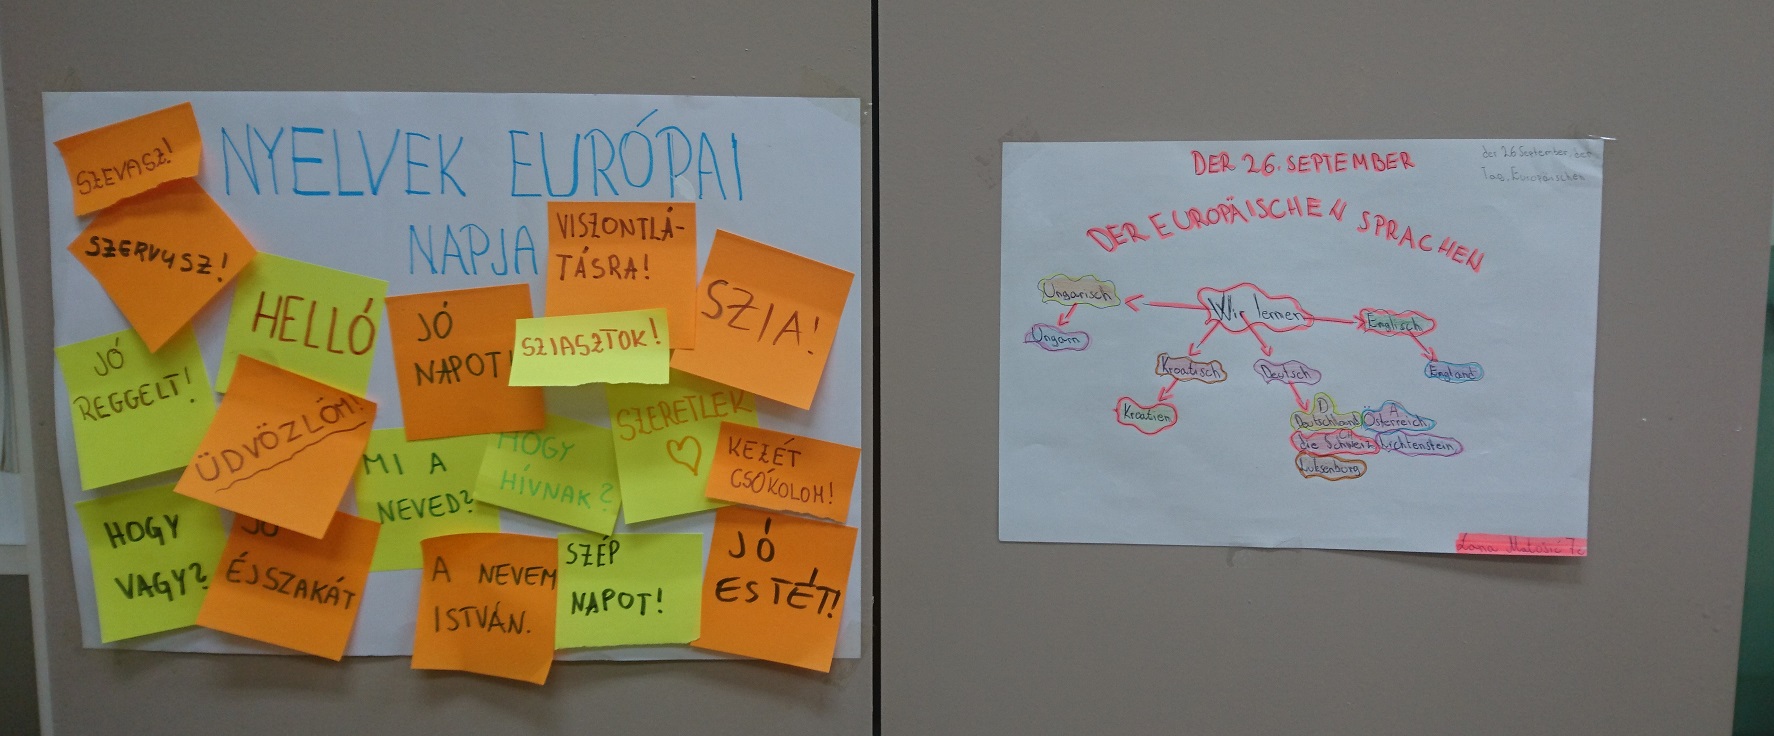 NYELVEK EURÓPAI
NAPJA
SZEVASZ!
SZERVUSZ!
HELLÓ
JÓ
NAPOT!
VISZONTLÁ-
TÁSRA!
SZIASZTOK!
SZIA!
JÓ
REGGELT!
ÜDVÖZLÖM!
MI A
NEVED?
HOGY
HÍVNAK?
SZERETLEK
KEZÉT
CSÓKOLOM!
HOGY
VAGY?
JÓ
ÉJSZAKÁT
A NEVEM
ISTVÁN.
SZÉP
NAPOT!
JÓ
ESTÉT!
DER 26. SEPTEMBER
der 26 September, der
Tag, Europäischen
DER EUROPÄISCHEN SPRACHEN
Wir lernen
Ungarisch
Ungarn
Kroatisch
Kroatien
Deutsch
D
Deutschland
A
Österreich
die Schweiz
CH
Lichtenstein
Luksenburg
Englisch
England
Lana